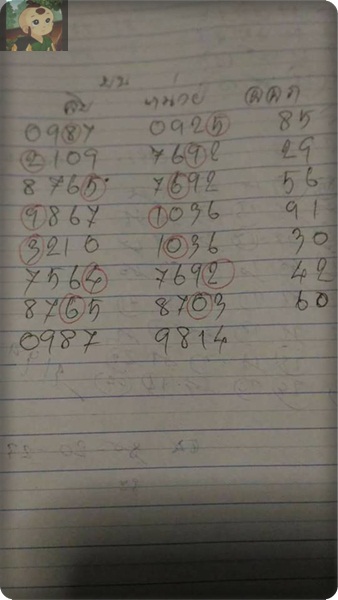 บน
สิบ หน่วย ออก
0987 0925 85
2109 7692 29
8765 7692 56
9867 1036 91
3210 1036 30
7564 7692 42
8765 8703 60
0987 9814